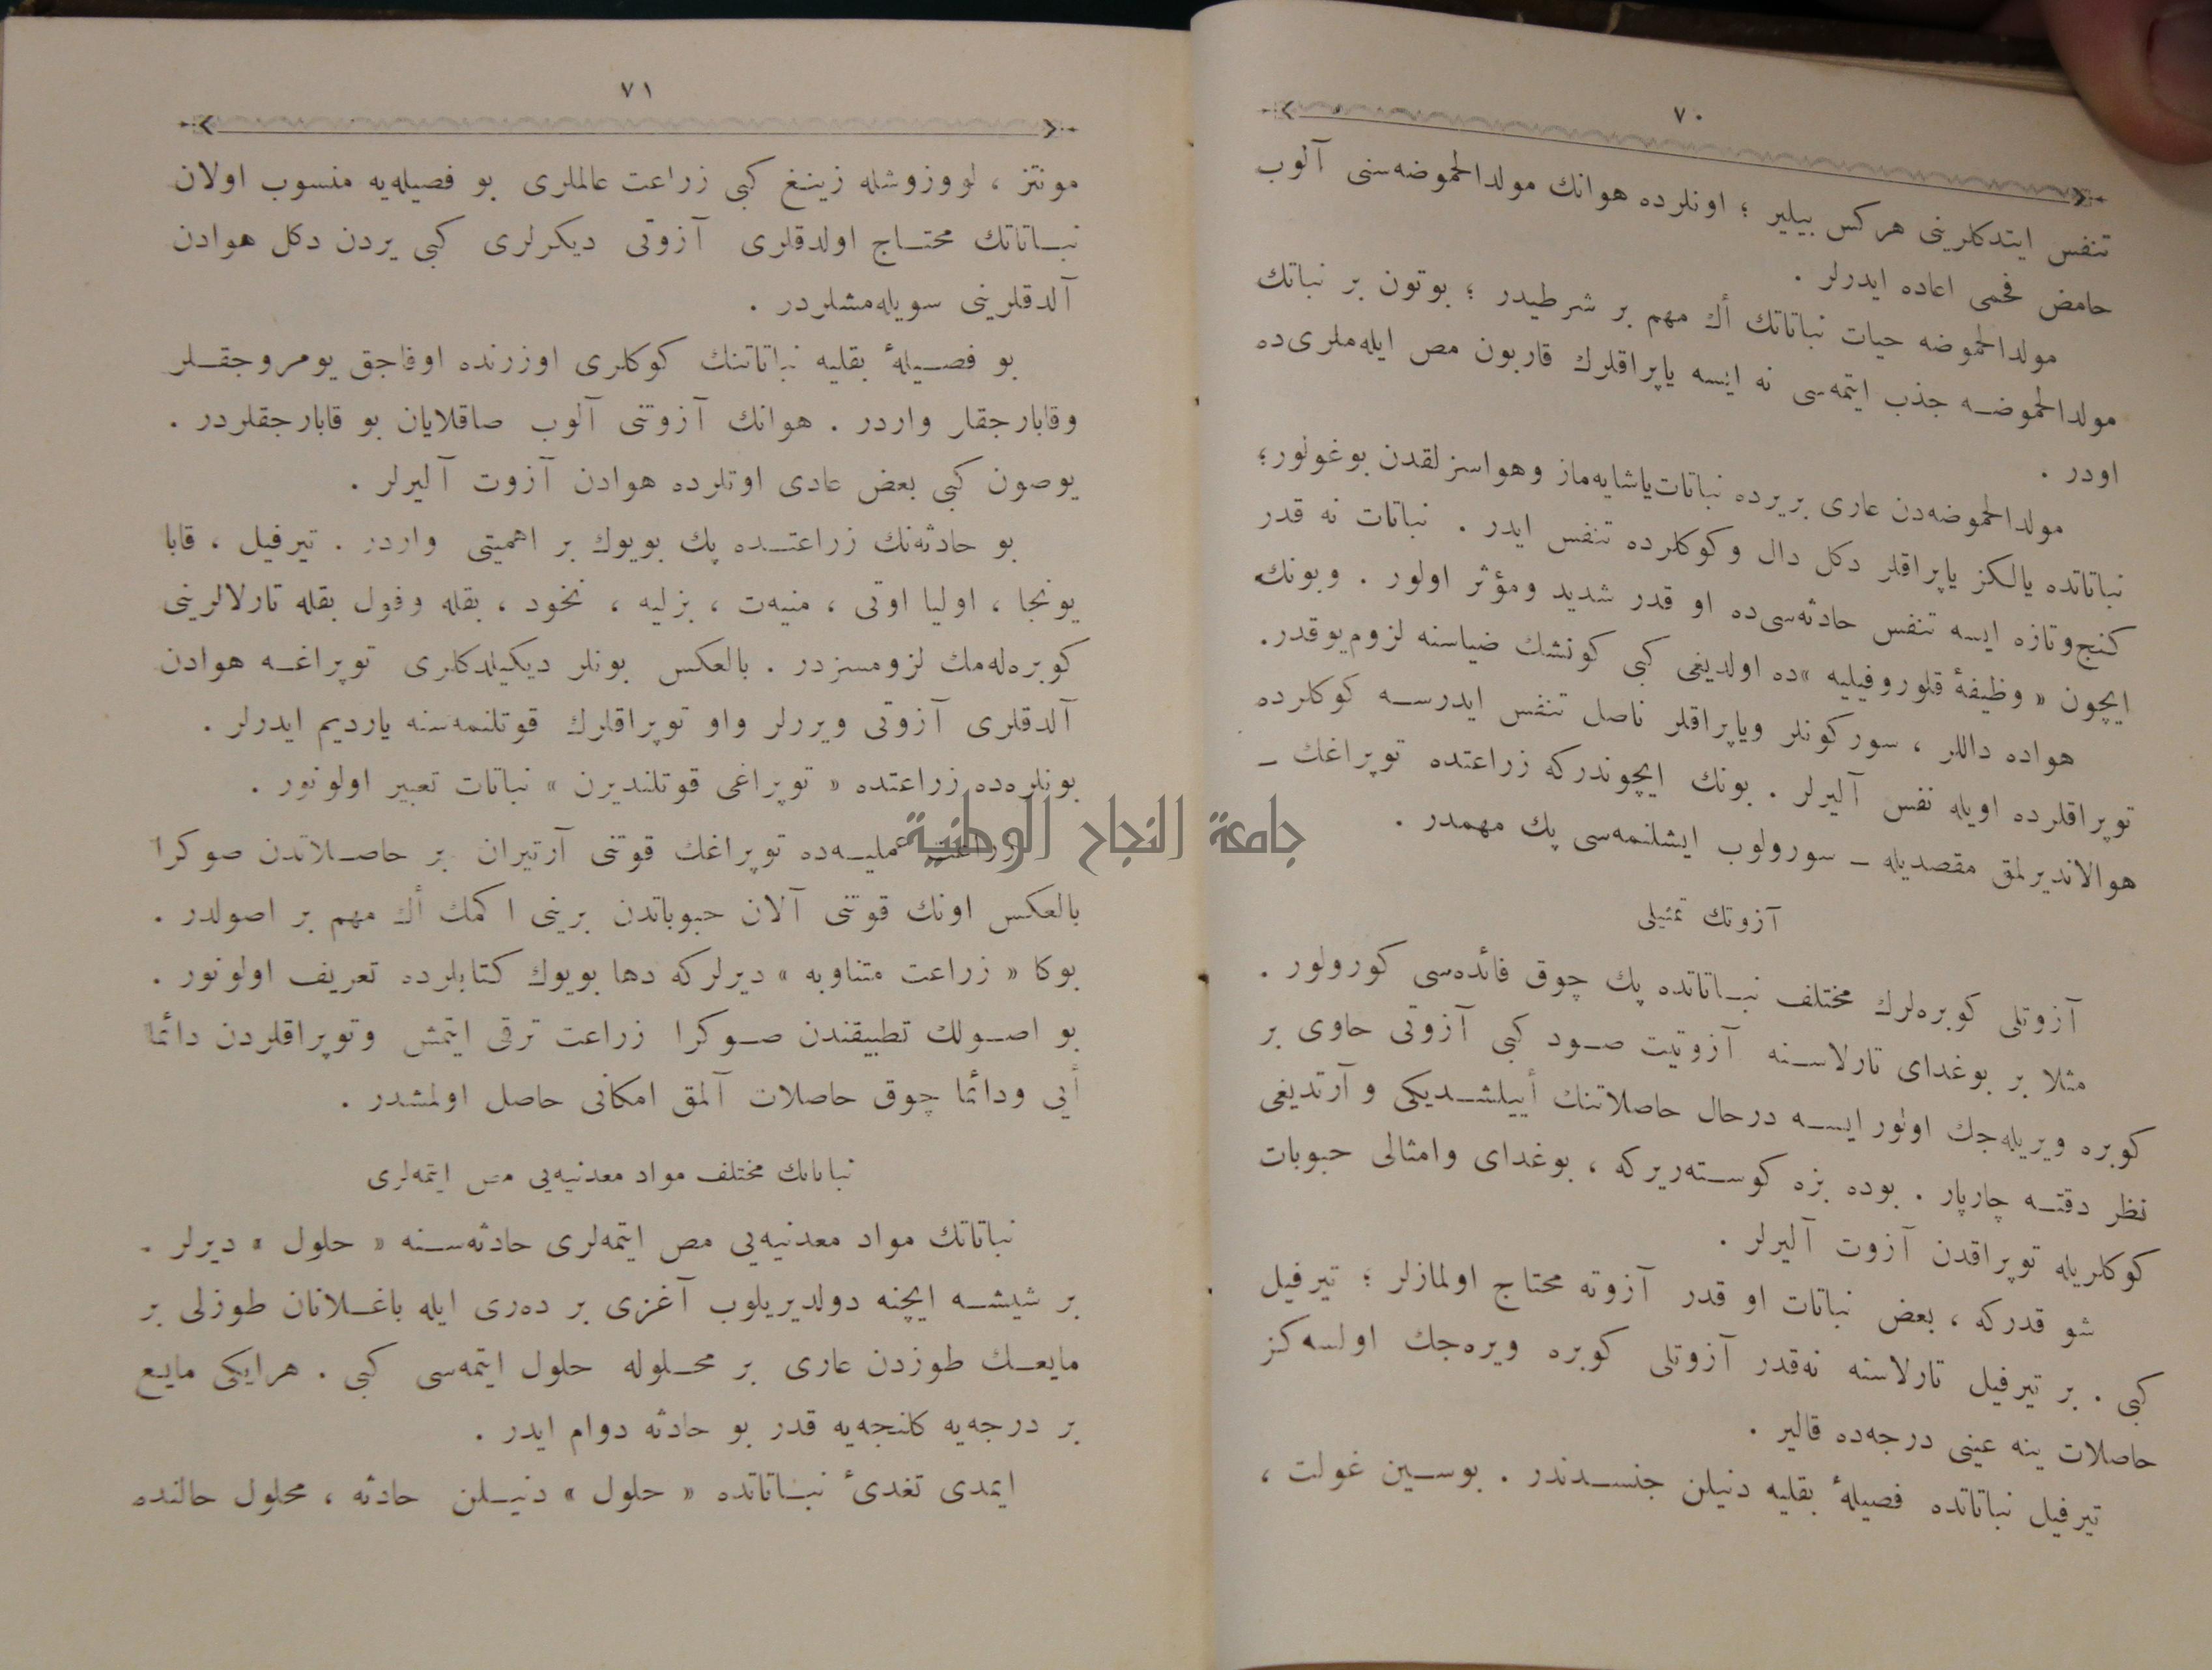 ٧٠
تنفس ايتدكلرينى هركس بيلير ؛ اونلرده هوانك مولدالحموضه‌سنى آلوب
حامض فحمى اعاده ايدرلر .
مولدالحموضه حيات نباتاتك أك مهم بر شرطيدر ؛ بوتون بر نباتك
مولدالحموضـه جذب ايتمه‌سى نه ايسه ياپراقلرك قاربون مص ايله‌ملرى‌ده
اودر .
مولدالحموضه‌دن عارى بريرده نباتات ياشايه‌ماز وهواسزلقدن بوغولور ؛
نباتاتده يالكز ياپراقلر دكل دال وكوكلرده تنفس ايدر . نباتات نه قدر
كنج وتازه ايسه تنفس حادثه‌سى‌ده او قدر شديد ومؤثر اولور . وبونك
ايچون « وظيفهٔ قلوروفيليه »ده اولديغى كبى كونشك ضياسنه لزوم يوقدر .
هواده داللر ، سوركونلر وياپراقلر ناصل تنفس ايدرسـه كوكلرده
توپراقلرده اويله نفس آليرلر . بونك ايچوندركه زراعتده توپراغك ــ
هوالانديرلمق مقصديله ــ سورولوب ايشلنمه‌سى پك مهمدر .
آزوتك تمثيلى
آزوتلى كوبره‌لرك مختلف نبـاتاتده پك چوق فائده‌سى كورولور .
مثلا بر بوغداى تارلاسـنه آزوتيت صـود كبى آزوتى حاوى بر
كوبره ويريله‌جك اولور ايسـه درحال حاصلاتنك أييلشـديكى و آرتديغى
نظر دقتـه چارپار . بوده بزه كوسـته‌ريركه ، بوغداى وامثالى حبوبات
كوكلريله توپراقدن آزوت آليرلر .
شو قدركه ، بعض نباتات او قدر آزوته محتاج اولمازلر ؛ تيرفيل
كبى . بر تيرفيل تارلاسنه نه‌قدر آزوتلى كوبره ويره‌جك اولسه‌كز
حاصلات ينه عينى درجه‌ده قالير .
تيرفيل نباتاتده فصيلهٔ بقليه دنيلن جنسـدندر . بوسـين غولت ،
٧١
مونتز ، لووزوشله زينغ كبى زراعت عالملرى بو فصيله‌يه منسوب اولان
نبـاتاتك محتـاج اولدقلرى آزوتى ديكرلرى كبى يردن دكل هوادن
آلدقلرينى سويله‌مشلردر .
بو فصـيلهٔ بقليه نباتاتنك كوكلرى اوزرنده اوفاجق يومروجقـلر
وقابارجقلر واردر . هوانك آزوتنى آلوب صاقلايان بو قابارجقلردر .
يوصون كبى بعض عادى اوتلرده هوادن آزوت آليرلر .
بو حادثه‌نك زراعتـده پك بويوك بر اهميتى واردر . تيرفيل ، قابا
يونجا ، اوليا اوتى ، منيه‌ت ، بزليه ، نخود ، بقله وفول بقله تارلالرينى
كوبره‌له‌مك لزومسزدر . بالعكس بونلر ديكيلدكلرى توپراغـه هوادن
آلدقلرى آزوتى ويررلر واو توپراقلرك قوتلنمه‌سنه يارديم ايدرلر .
بونلره‌ده زراعتده « توپراغى قوتلنديرن » نباتات تعبير اولونور .
زراعت عمليـه‌ده توپراغك قوتنى آرتيران بر حاصـلاتدن صوكرا
بالعكس اونك قوتنى آلان حبوباتدن برينى اكمك أك مهم بر اصولدر .
بوكا « زراعت متناوبه » ديرلركه دها بويوك كتابلرده تعريف اولونور .
بو اصـولك تطبيقندن صـوكرا زراعت ترقى ايتمش وتوپراقلردن دائما
أيي ودائما چوق حاصلات آلمق امكانى حاصل اولمشدر .
نباتاتك مختلف مواد معدنيه‌يى مص ايتمه‌لرى
نباتاتك مواد معدنيه‌يى مص ايتمه‌لرى حادثه‌سـنه « حلول » ديرلر .
بر شيشـه ايچنه دولديريلوب آغزى بر ده‌رى ايله باغـلانان طوزلى بر
مايعـك طوزدن عارى بر محـلوله حلول ايتمه‌سى كبى . هرايكى مايع
بر درجه‌يه كلنجه‌يه قدر بو حادثه دوام ايدر .
ايمدى تغدىٔ نبـاتاتده « حلول » دنيـلن حادثه ، محلول حالنده
جامعة النجاح الوطنية